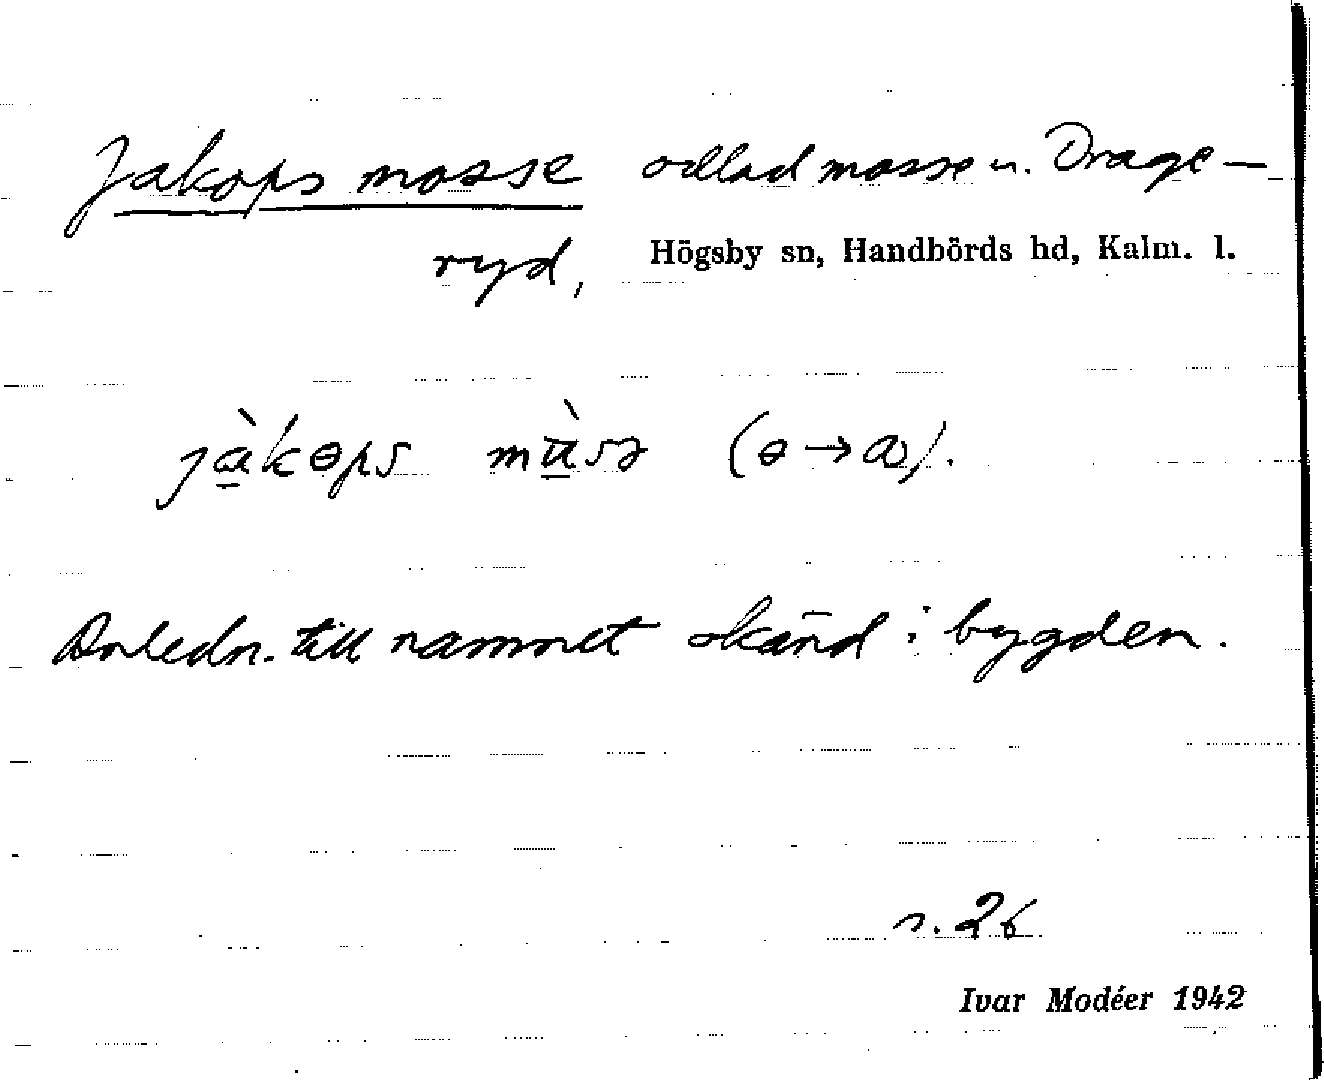 Jakops mosse odlad mosse u. Drage-
ryd, Högsby sn, Handbörds hd, Kalm. l.
jàkɵps mùsə (ɵ→ω).
Anledn. till namnet okänd i bygden.
s. 26
Ivar Modéer 1942